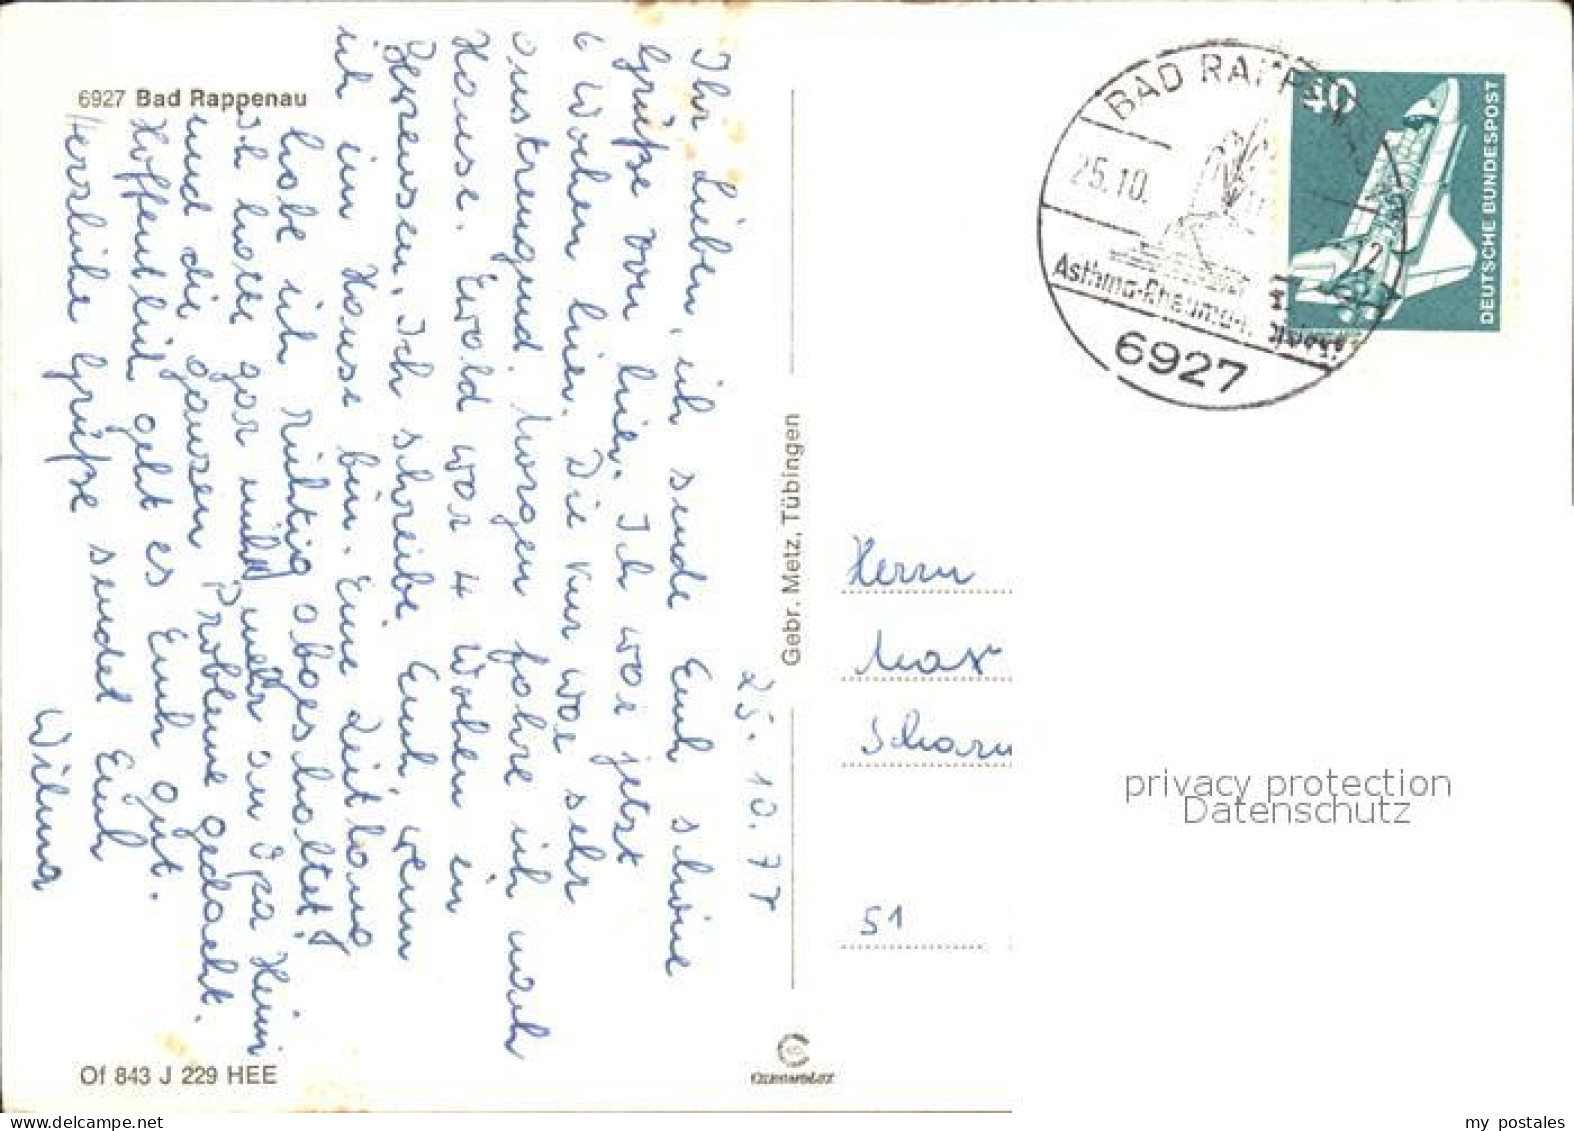 6927 Bad Rappenau
25.10.77
Ihr Lieben, ich sende Euch schöne
Grüße von hier. Ich war jetzt
6 Wochen hier. Die Kur war sehr
anstrengend. Morgen fahre ich nach
Hause. Ewald war 4 Wochen in
Ich schreibe Euch, wenn
ich im Hause bin. Eine Zeitlang
habe ich richtig abgeschaltet!
Ich hatte gar nicht mehr an Opa Heini
und die ganzen Probleme gedacht.
Hoffentlich geht es Euch gut.
Herzliche Grüße sendet Euch
Wilma
Gebr. Metz, Tübingen
Of 843 J 229 HEE
BAD RAPPENAU
25.10.
12
6927
40
DEUTSCHE BUNDESPOST
Herrn
Max
51
privacy protection
Datenschutz
my postales